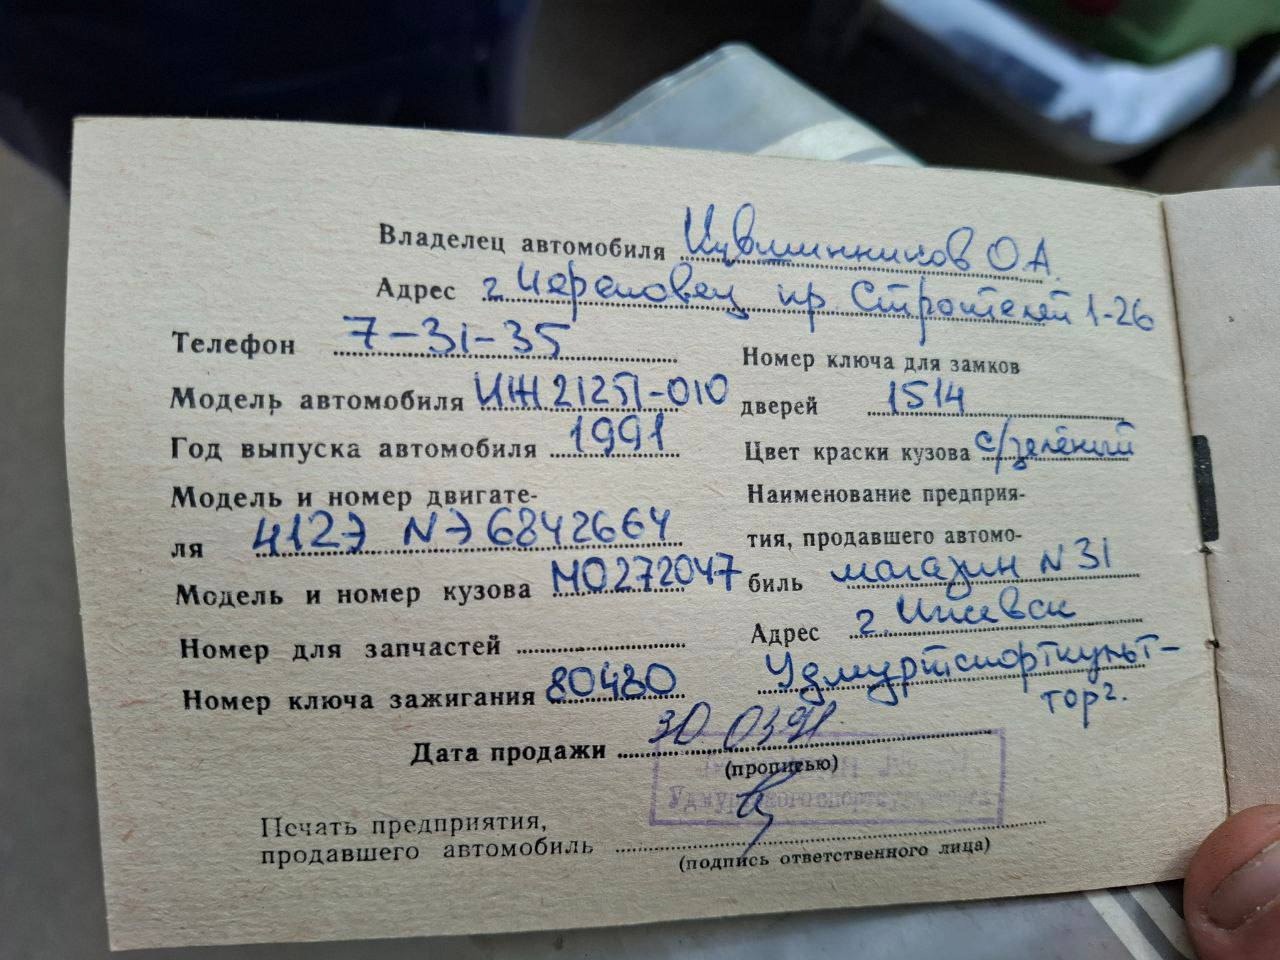 Владелец автомобиля Кувшинников О.А.
Адрес г. Череповец пр. Строителей 1-26
Телефон 7-31-35
Модель автомобиля ИЖ 21251-010
Год выпуска автомобиля 1991
Модель и номер двигате-
ля 412Э №Э 6842664
Модель и номер кузова М0272047
Номер для запчастей
Номер ключа зажигания 80480
Номер ключа для замков
дверей 1514
Цвет краски кузова с/зелёный
Наименование предприя-
тия, продавшего автомо-
биль магазин N 31
Адрес г. Ижевск
Удмуртспорткульт-
торг.
Дата продажи 30 03 91
(прописью)
Печать предприятия,
продавшего автомобиль
(подпись ответственного лица)